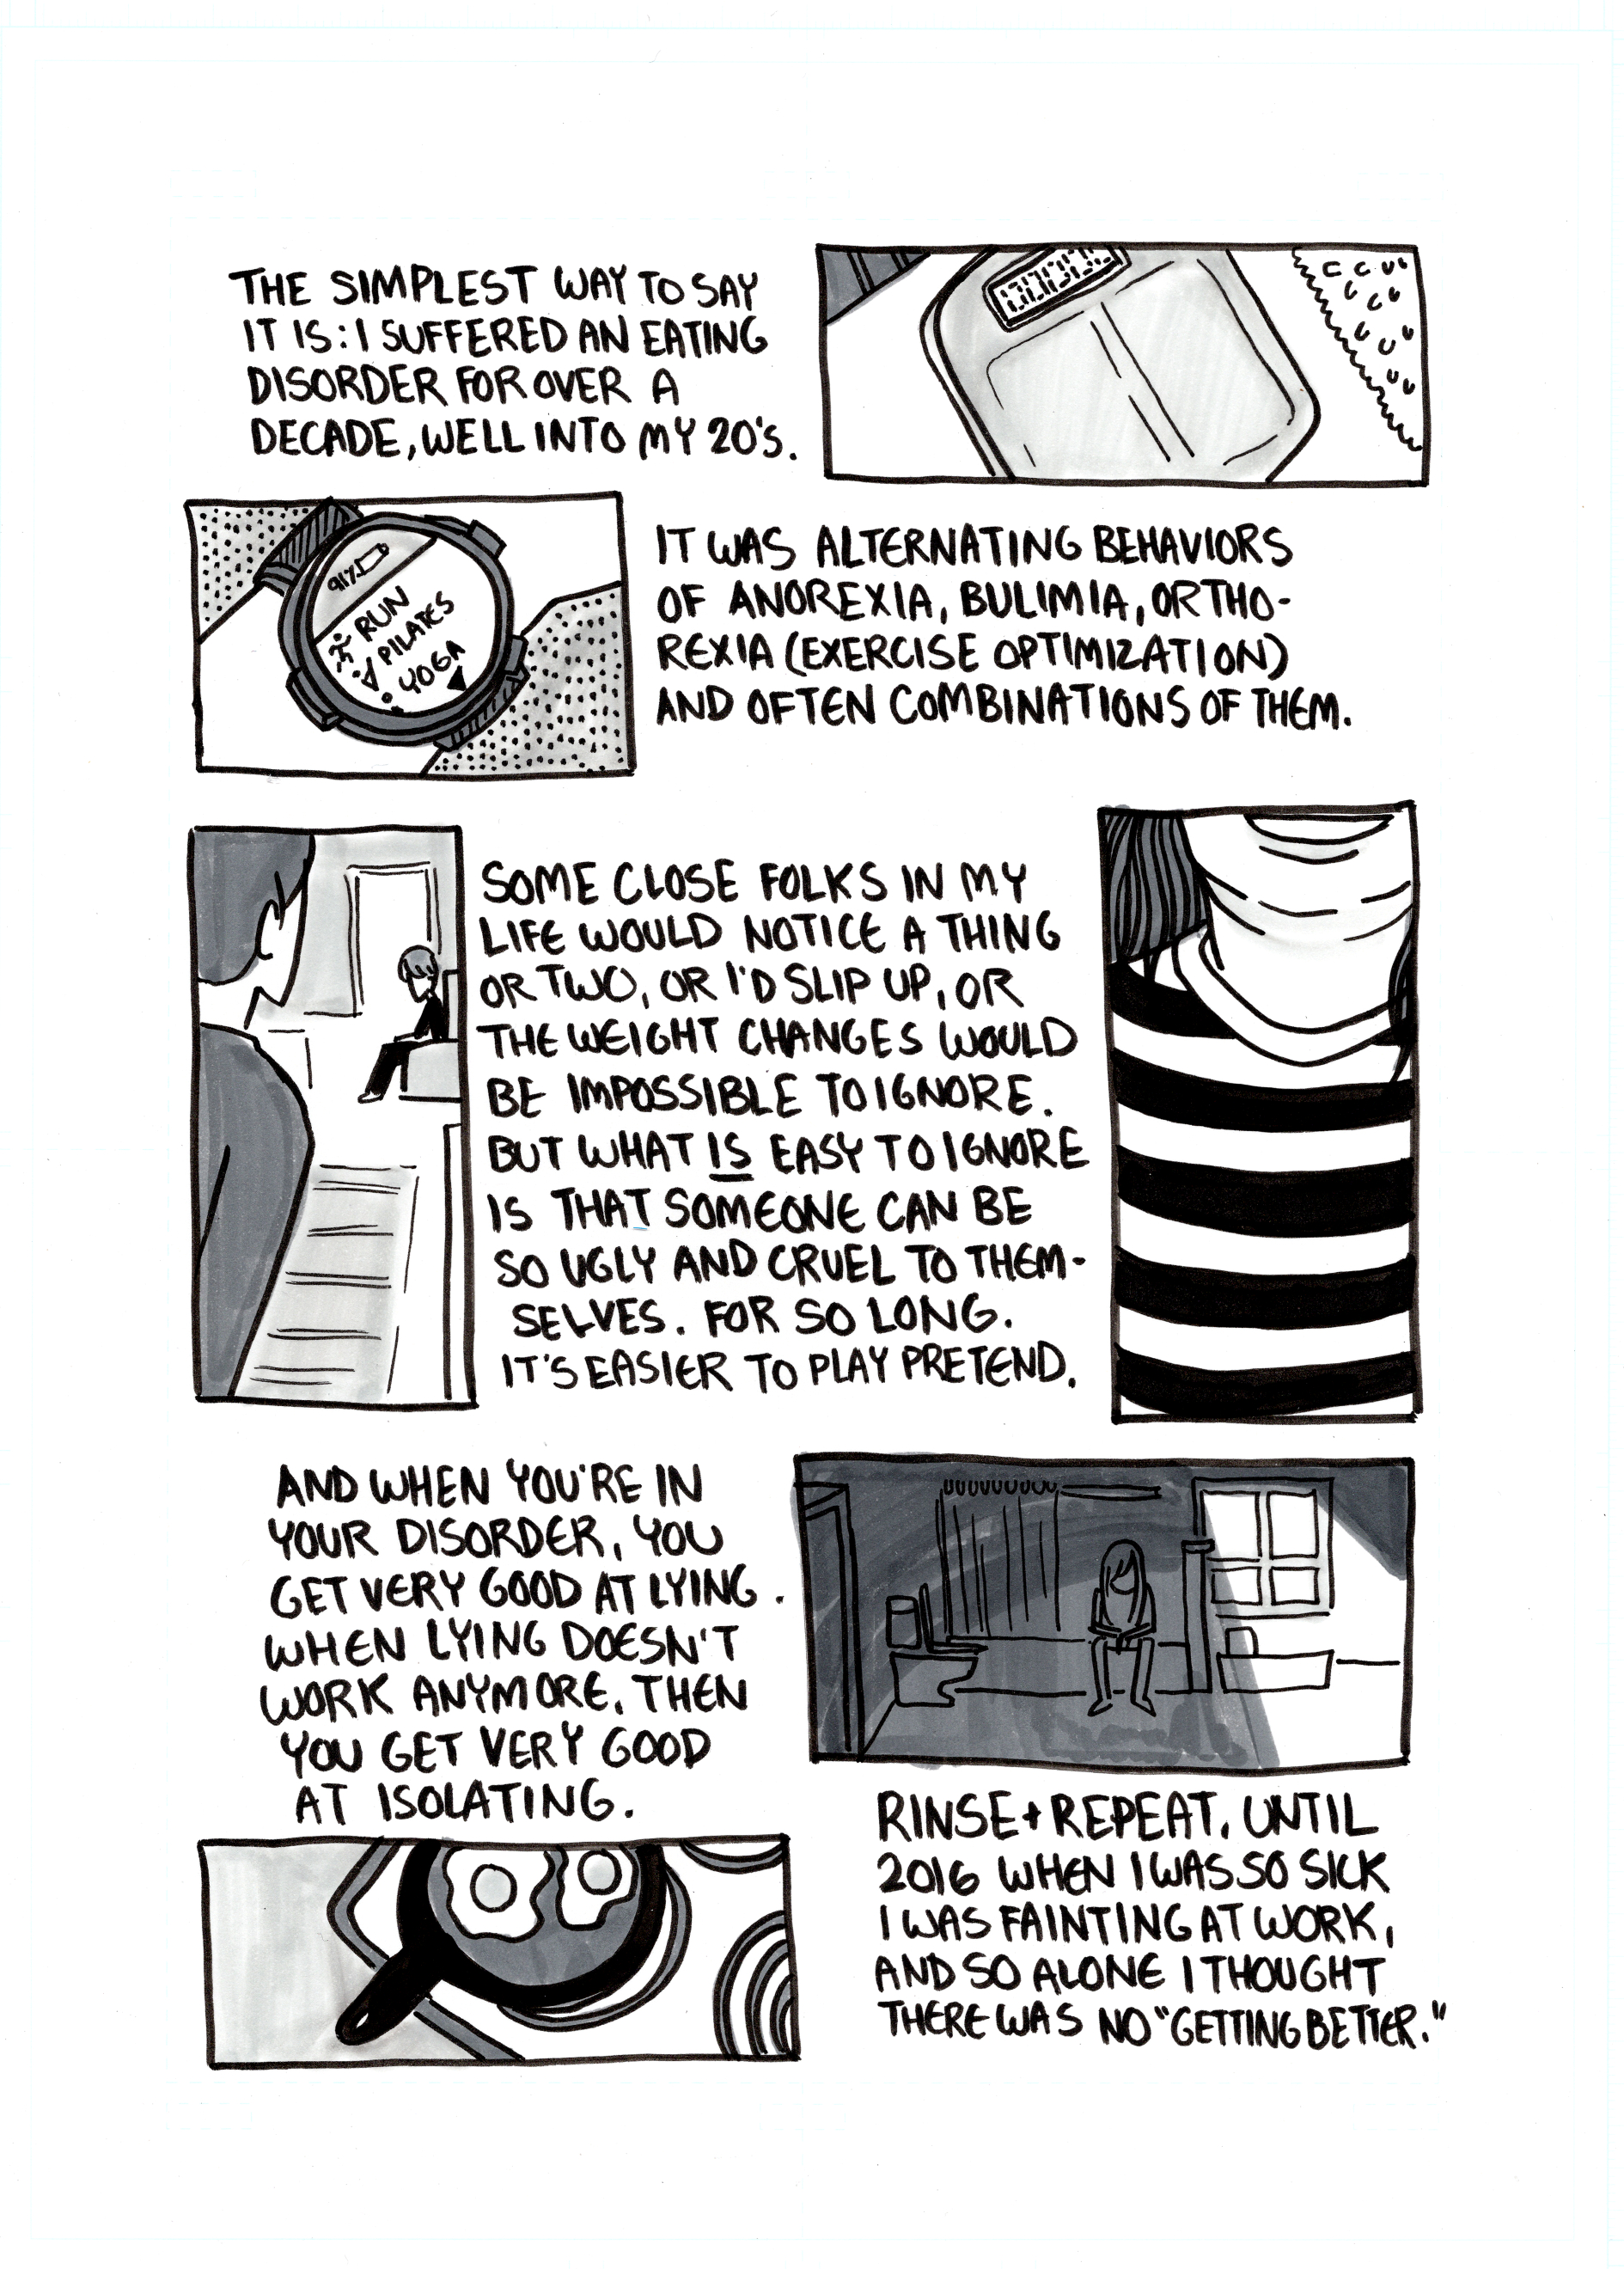 THE SIMPLEST WAY TO SAY
IT IS: I SUFFERED AN EATING
DISORDER FOR OVER A
DECADE, WELL INTO MY 20'S.
91%
RUN
PILATES
YOGA
IT WAS ALTERNATING BEHAVIORS
OF ANOREXIA, BULIMIA, ORTHO-
REXIA (EXERCISE OPTIMIZATION)
AND OFTEN COMBINATIONS OF THEM.
SOME CLOSE FOLKS IN MY
LIFE WOULD NOTICE A THING
OR TWO, OR I'D SLIP UP, OR
THE WEIGHT CHANGES WOULD
BE IMPOSSIBLE TO IGNORE.
BUT WHAT IS EASY TO IGNORE
IS THAT SOMEONE CAN BE
SO UGLY AND CRUEL TO THEM-
SELVES. FOR SO LONG.
IT'S EASIER TO PLAY PRETEND.
AND WHEN YOU'RE IN
YOUR DISORDER, YOU
GET VERY GOOD AT LYING.
WHEN LYING DOESN'T
WORK ANYMORE, THEN
YOU GET VERY GOOD
AT ISOLATING.
RINSE + REPEAT, UNTIL
2016 WHEN I WAS SO SICK
I WAS FAINTING AT WORK,
AND SO ALONE I THOUGHT
THERE WAS NO "GETTING BETTER."